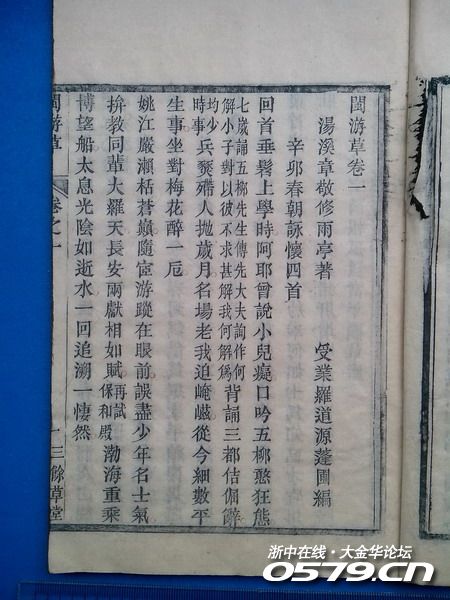 閩游草卷一
湯溪章敬修雨亭著 受業羅道源蓬圃編
辛卯春朝詠懷四首
回首垂髫上學時阿耶曾說小兒癡口吟五柳憨狂態
七歲誦五柳先生傳先大夫詢作何解小子對以彼不求甚解我何解爲背誦三都佶倔辭
均少時事兵燹殢人拋歲月名場老我迫崦嵫從今細數平
生事坐對梅花醉一卮
姚江嚴瀨栝蒼巔隨宦游蹤在眼前誤盡少年名士氣
拚教同輩大羅天長安兩獻相如賦再試保和殿渤海重乘
博望船太息光陰如逝水一回追溯一悽然
閩游草 卷之一 一 三餘草堂
浙中在线·大金华论坛
0579.cn